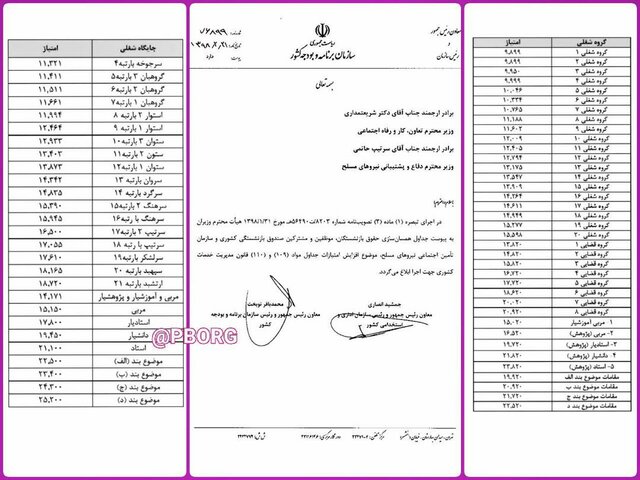 جایگاه شغلی امتیاز
سرجوخه یارتبه۴ ۱۱,۳۲۱
گروهبان ۳ یارتبه۵ ۱۱,۴۱۱
گروهبان ۲ یارتبه۶ ۱۱,۵۱۱
گروهبان ۱ یارتبه۷ ۱۱,۶۶۱
استوار ۲ یارتبه ۸ ۱۱,۹۹۴
استوار ۱ یارتبه ۹ ۱۲,۴۶۴
ستوان ۳ یارتبه۱۰ ۱۲,۹۳۳
ستون ۲ یارتبه۱۱ ۱۳,۴۰۳
ستوان ۱ یارتبه۱۲ ۱۳,۸۷۳
سروان یارتبه ۱۳ ۱۴,۳۴۲
سرگرد یارتبه ۱۴ ۱۴,۸۳۵
سرهنگ ۲ یارتبه۱۵ ۱۵,۳۹۰
سرهنگ یا رتبه۱۶ ۱۵,۹۴۵
سرتیپ ۲ یارتبه۱۷ ۱۶,۵۰۰
سرتیپ یا رتبه ۱۸ ۱۷,۰۵۵
سرلشکر یارتبه۱۹ ۱۷,۶۱۰
سپهبد یارتبه ۲۰ ۱۸,۱۶۵
ارتشبد یارتبه ۲۱ ۱۸,۷۲۰
مربی و آموزشیار و پژوهشیار ۱۴,۱۷۱
مربی ۱۵,۱۵۰
استادیار ۱۷,۸۰۰
دانشیار ۱۹,۴۵۰
استاد ۲۱,۱۰۰
موضوع بند (الف) ۲۲,۵۰۰
موضوع بند (ب) ۲۳,۴۰۰
موضوع بند (ج) ۲۴,۳۰۰
موضوع بند (د) ۲۵,۲۰۰
@PBORG
معاون رئیس جمهور
و
رئیس سازمان
ریاست جمهوری
سازمان برنامه و بودجه کشور
شماره: ۷۶۸۹۹
تاریخ: ۱۳۹۸/۲/۲۱
پیوست: دارد
بسمه تعالی
برادر ارجمند جناب آقای دکتر شریعتمداری
وزیر محترم تعاون، کار و رفاه اجتماعی
برادر ارجمند جناب آقای سرتیپ حاتمی
وزیر محترم دفاع و پشتیبانی نیروهای مسلح
با سلام و احترام؛
در اجرای تبصره (۱) ماده (۲) تصویب‌نامه شماره ۸۲۰۳/ت۵۶۴۹۰هـ مورخ ۱۳۹۸/۱/۳۱ هیأت محترم وزیران
به پیوست جداول همسان‌سازی حقوق بازنشستگان، موظفین و مشترکین صندوق بازنشستگی کشوری و سازمان
تأمین اجتماعی نیروهای مسلح، موضوع افزایش امتیازات جداول مواد (۱۰۹) و (۱۱۰) قانون مدیریت خدمات
کشوری جهت اجرا ابلاغ می‌گردد.
جمشید انصاری
معاون رئیس جمهور و رئیس سازمان اداری و
استخدامی کشور
محمدباقر نوبخت
معاون رئیس جمهور و رئیس سازمان برنامه و بودجه
کشور
گروه شغلی امتیاز
گروه شغلی ۱ ۹,۸۹۹
گروه شغلی ۲ ۹,۸۹۹
گروه شغلی ۳ ۹,۹۵۰
گروه شغلی ۴ ۹,۹۹۹
گروه شغلی ۵ ۱۰,۰۴۶
گروه شغلی ۶ ۱۰,۳۳۴
گروه شغلی ۷ ۱۰,۷۶۵
گروه شغلی ۸ ۱۱,۱۸۸
گروه شغلی ۹ ۱۱,۶۰۲
گروه شغلی ۱۰ ۱۲,۰۰۹
گروه شغلی ۱۱ ۱۲,۴۰۵
گروه شغلی ۱۲ ۱۲,۷۹۴
گروه شغلی ۱۳ ۱۳,۱۷۵
گروه شغلی ۱۴ ۱۳,۵۴۷
گروه شغلی ۱۵ ۱۳,۹۰۹
گروه شغلی ۱۶ ۱۴,۲۶۴
گروه شغلی ۱۷ ۱۴,۶۱۱
گروه شغلی ۱۸ ۱۴,۹۴۹
گروه شغلی ۱۹ ۱۵,۲۷۷
گروه شغلی ۲۰ ۱۵,۵۹۸
گروه قضایی ۱ ۱۳,۸۲۰
گروه قضایی ۲
گروه قضایی ۳
گروه قضایی ۴ ۱۶,۷۲۰
گروه قضایی ۵ ۱۷,۷۲۰
گروه قضایی ۶ ۱۸,۶۲۰
گروه قضایی ۷ ۲۰,۰۲۰
گروه قضایی ۸ ۲۰,۹۲۰
۱- مربی آموزشیار ۱۵,۰۲۰
۲- مربی (پژوهش) ۱۶,۵۲۰
۳- استادیار (پژوهش) ۱۹,۷۲۰
۴- دانشیار (پژوهش) ۲۱,۸۲۰
۵- استاد (پژوهش) ۲۳,۸۲۰
مقامات موضوع بند الف ۱۹,۹۲۰
مقامات موضوع بند ب ۲۰,۹۲۰
مقامات موضوع بند ج ۲۱,۷۲۰
مقامات موضوع بند د ۲۲,۵۲۰